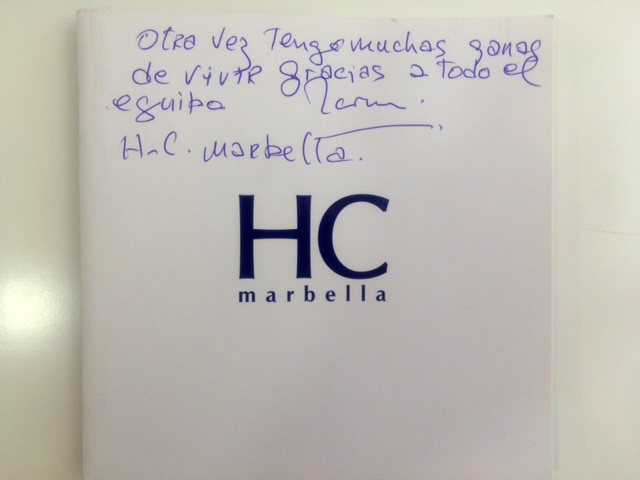 Otra vez Tengo muchas ganas
de vivir gracias a Todo el
equipo
H.C. marbella.
HC
marbella